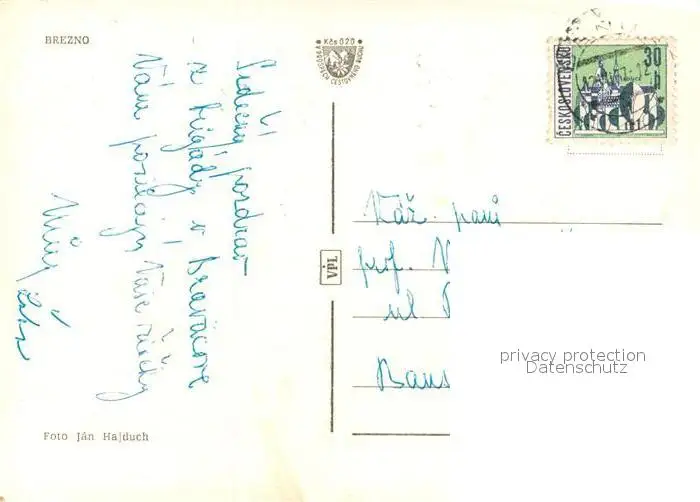 BREZNO
Kčs 0,20
ČESKOSLOVENSKO
30
h
Srdečný pozdrav
z brigády v Bravacove
Vám posielajú Vaše žiačky
Váž. pani
prof. V
ul
Bans
VPL
privacy protection
Datenschutz
Foto Ján Hajduch